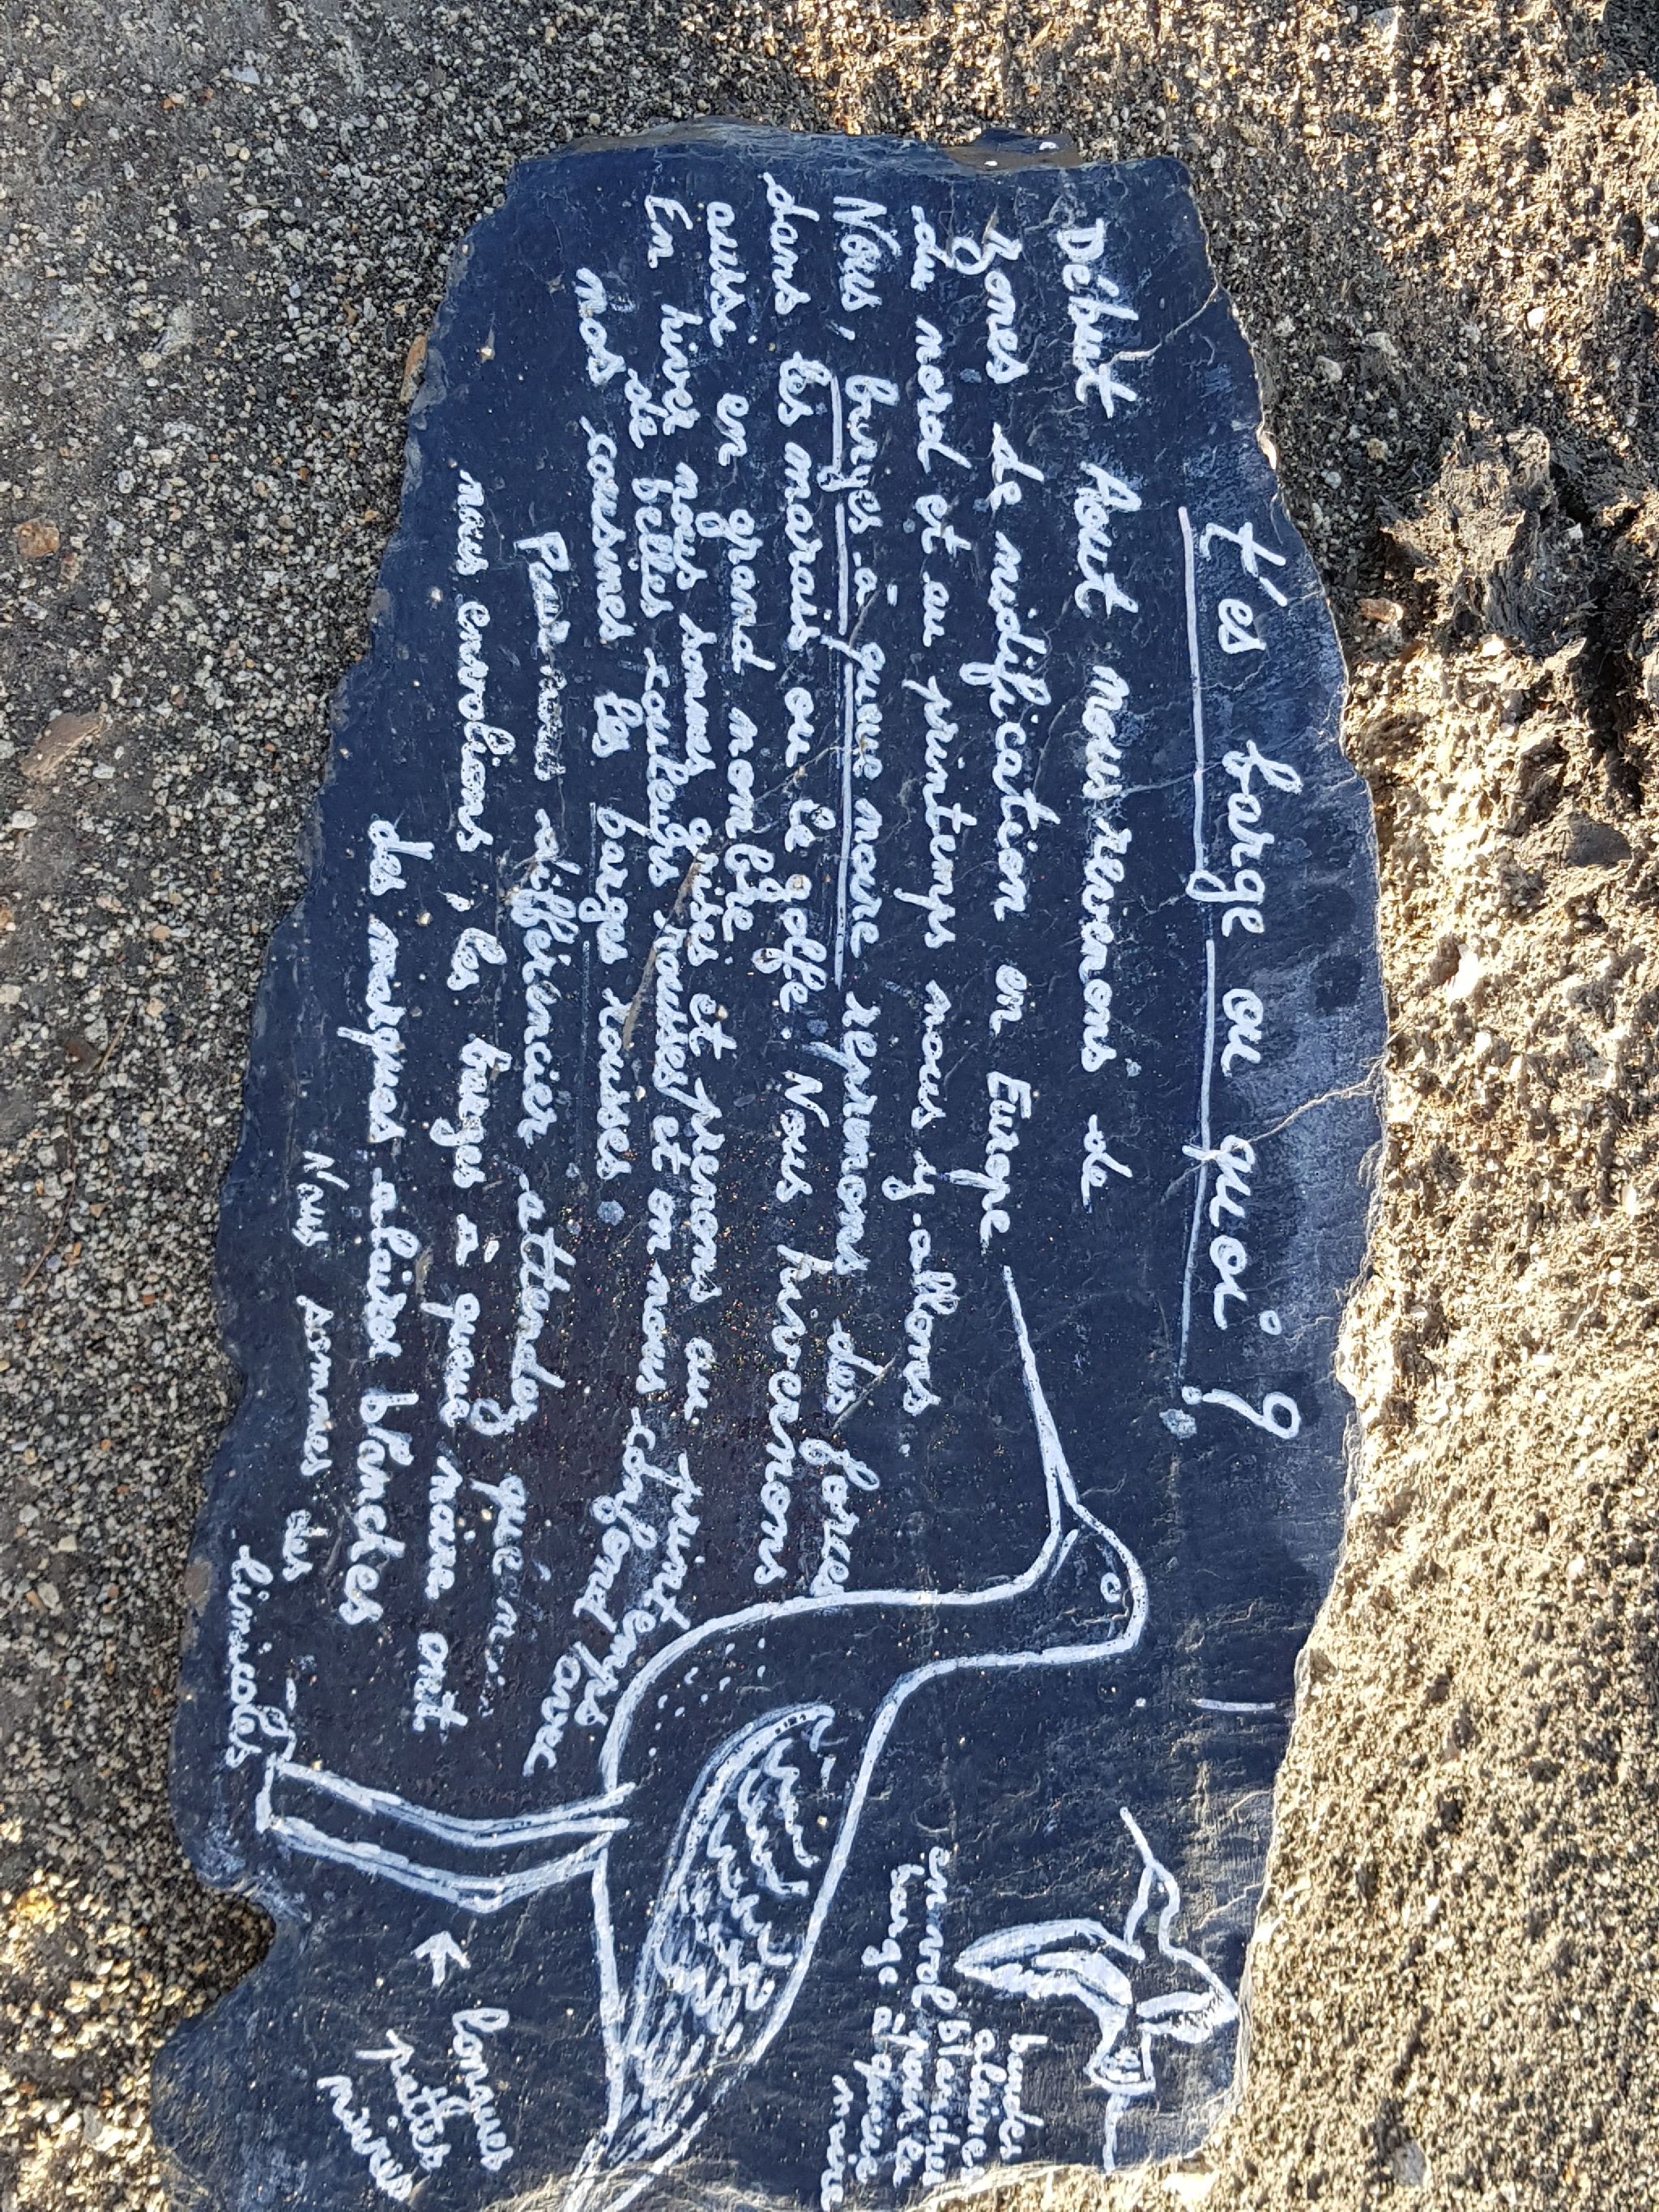 t'es barge ou quoi ?
Début Aout nous revenons de
zones de nidification en Europe
du nord et au printemps nous y allons
Nous, barges à queue noire reprenons des forces
dans les marais ou le golfe. Nous hivernons
aussi en grand nombre
En hiver nous sommes grises et prenons au printemps
de belles couleurs rousses et on nous confond avec
nos cousines les barges rousses.
Pour nous différencier attendez que
nous envolions, les barges à queue noire ont
des marques alaire blanches
Nous sommes des
limicoles
bandes
alaires
blanches
en vol pour la
barge à queue
noire
longues
pattes
noires